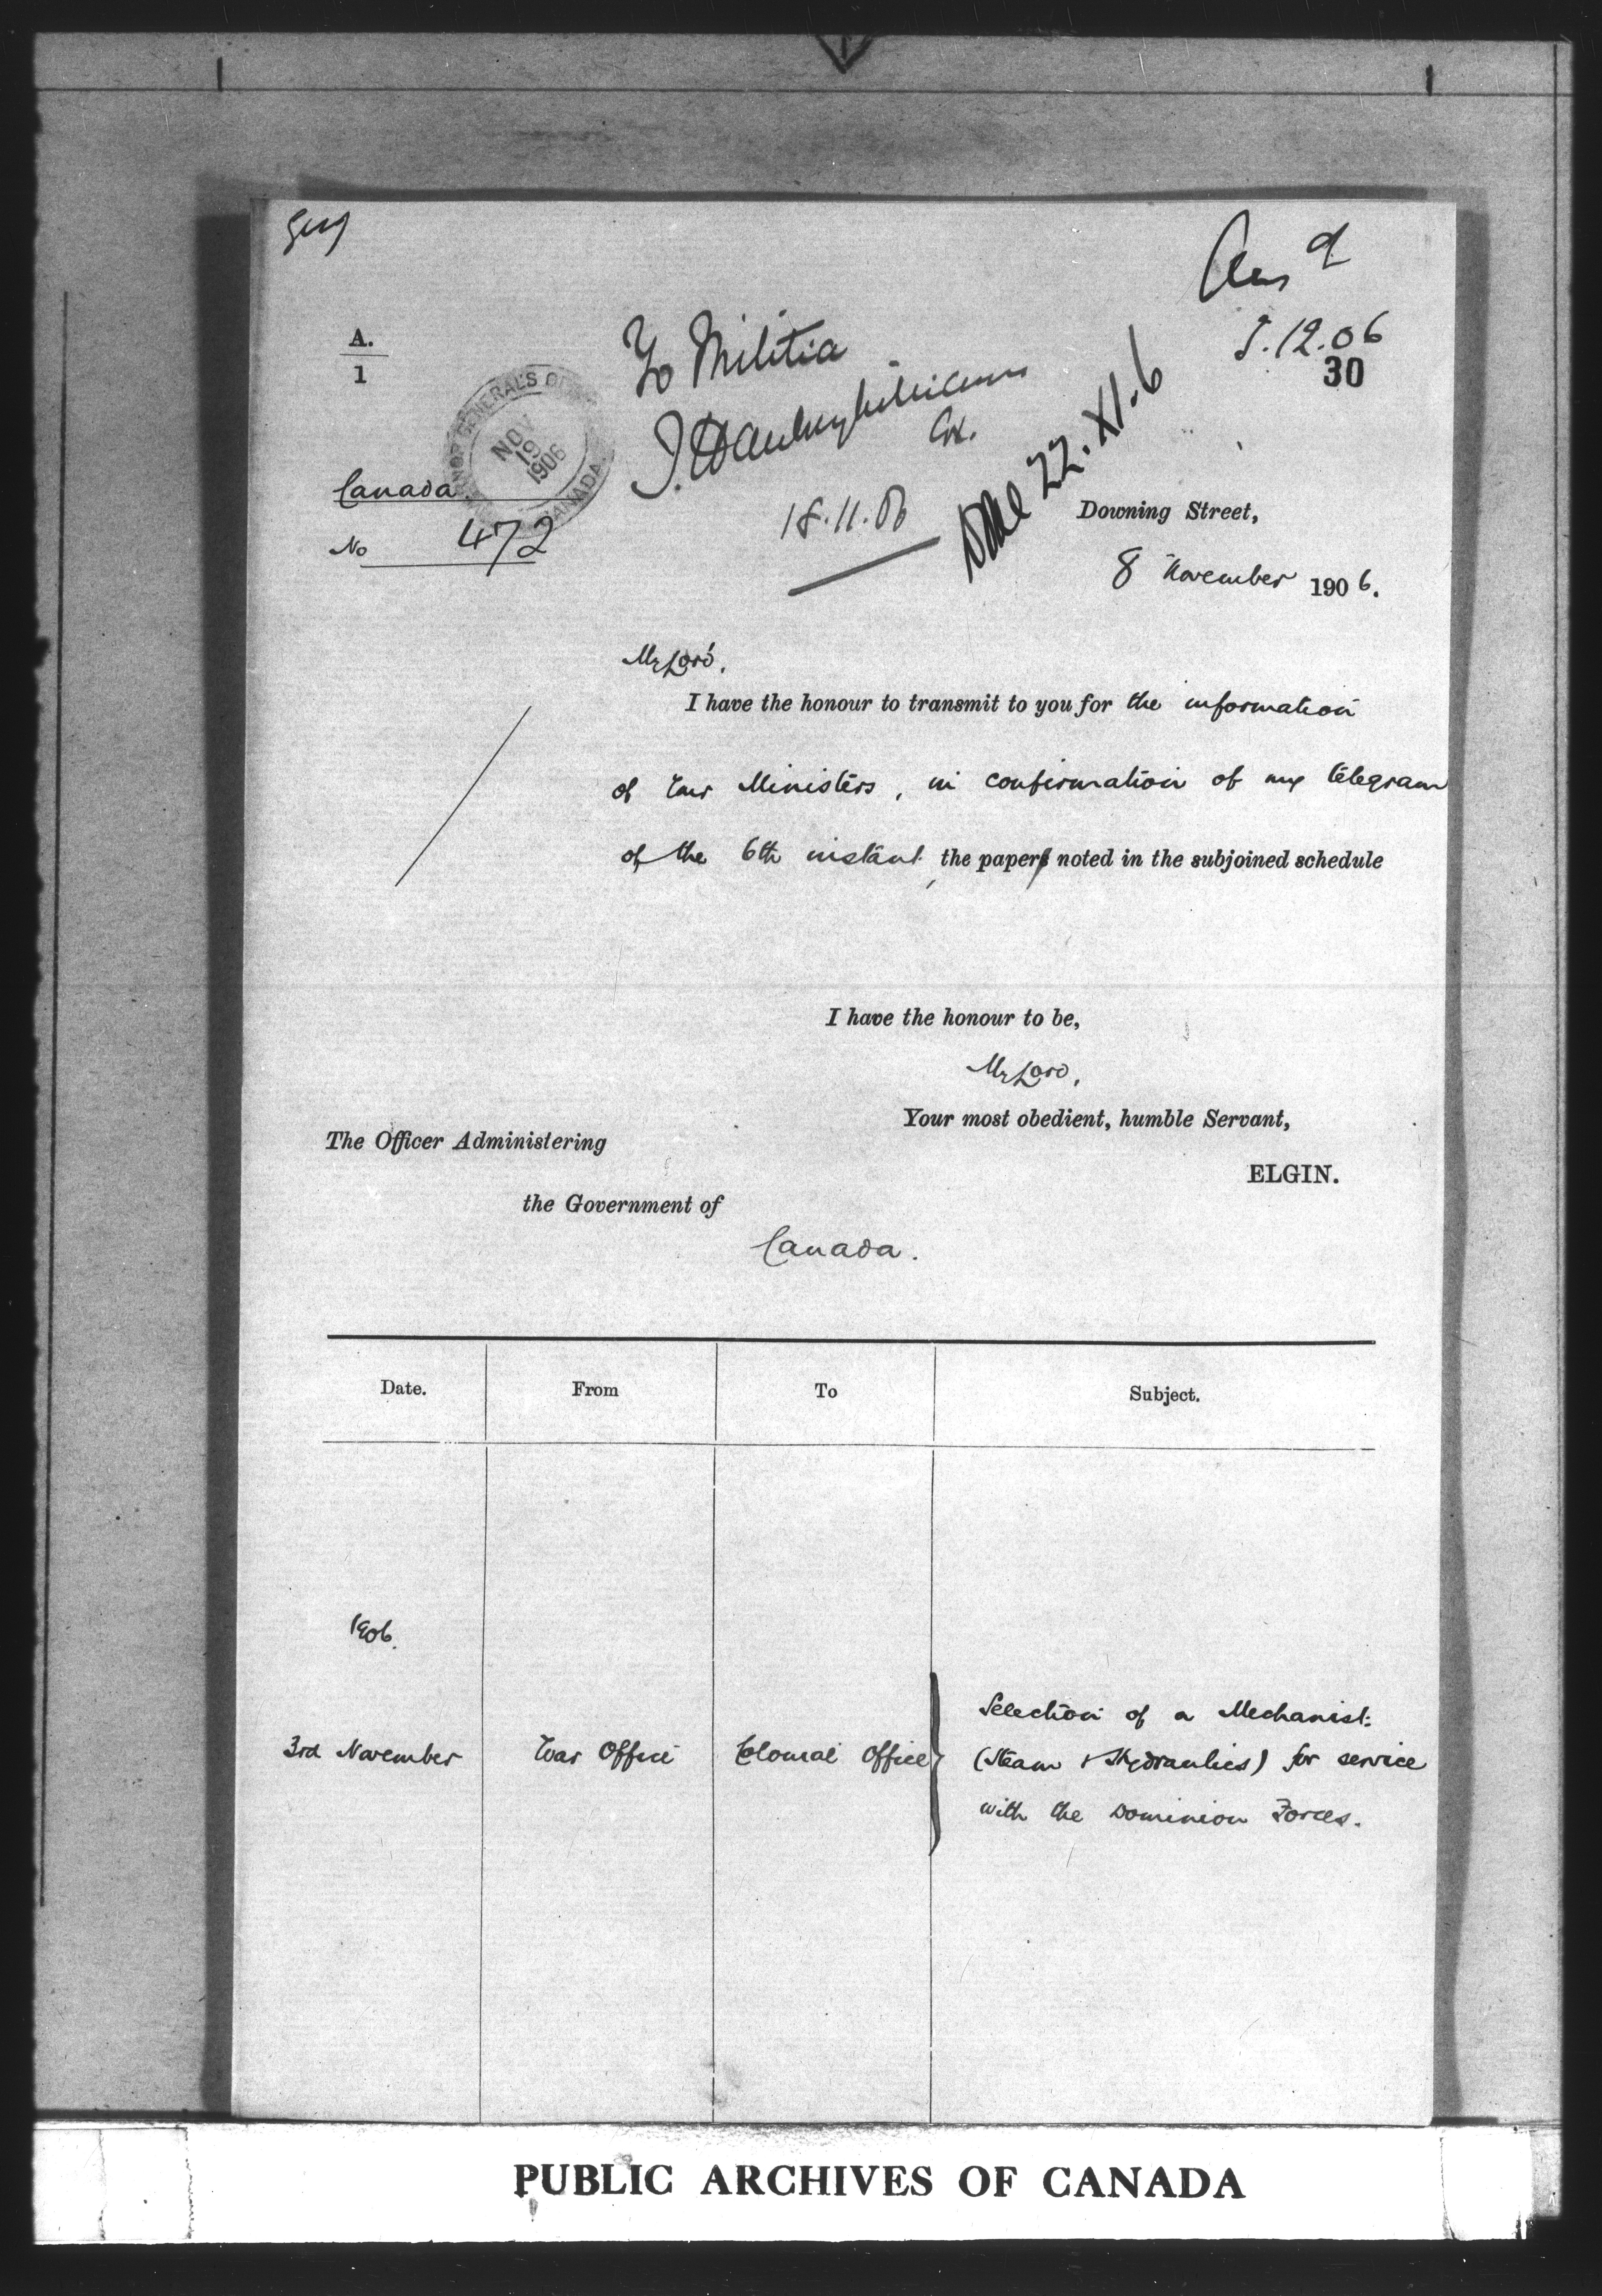 Ans d
5.12.06
30
A.
1
To Militia
18.11.06
22.XI.6
GOVERNOR GENERAL'S OFFICE
NOV
19
1906
CANADA
Canada
No 472
Downing Street,
8 November 1906.
My Lord,
I have the honour to transmit to you for the information
of Your Ministers, in confirmation of my telegram
of the 6th instant, the paper noted in the subjoined schedule
I have the honour to be,
My Lord,
Your most obedient, humble Servant,
ELGIN.
The Officer Administering
the Government of
Canada.
Date. From To Subject.
1906.
3rd November War Office Colonial Office
Selection of a Mechanist:
(Steam & Hydraulics) for service
with the Dominion Forces.
PUBLIC ARCHIVES OF CANADA